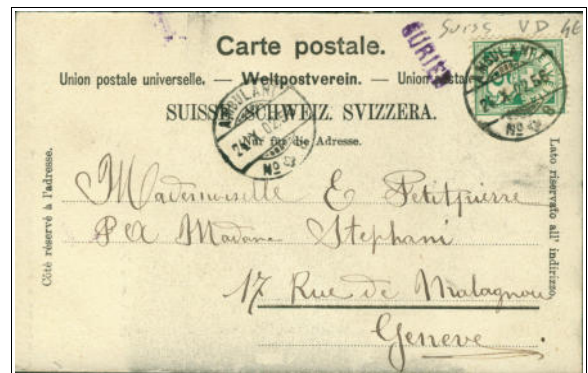 Suiss VD 4€
Carte postale.
Union postale universelle. — Weltpostverein. — Union postale
SUISSE. SCHWEIZ. SVIZZERA.
Nur für die Adresse.
AMBULANT
24. X. 02.
No
AMBULANT
24. X. 02.
No
Côté réservé à l'adresse.
Lato riservato all' indirizzo.
Mademoiselle E Petitpierre
P a Madame Stephani
17 Rue de Malagnou
Geneve